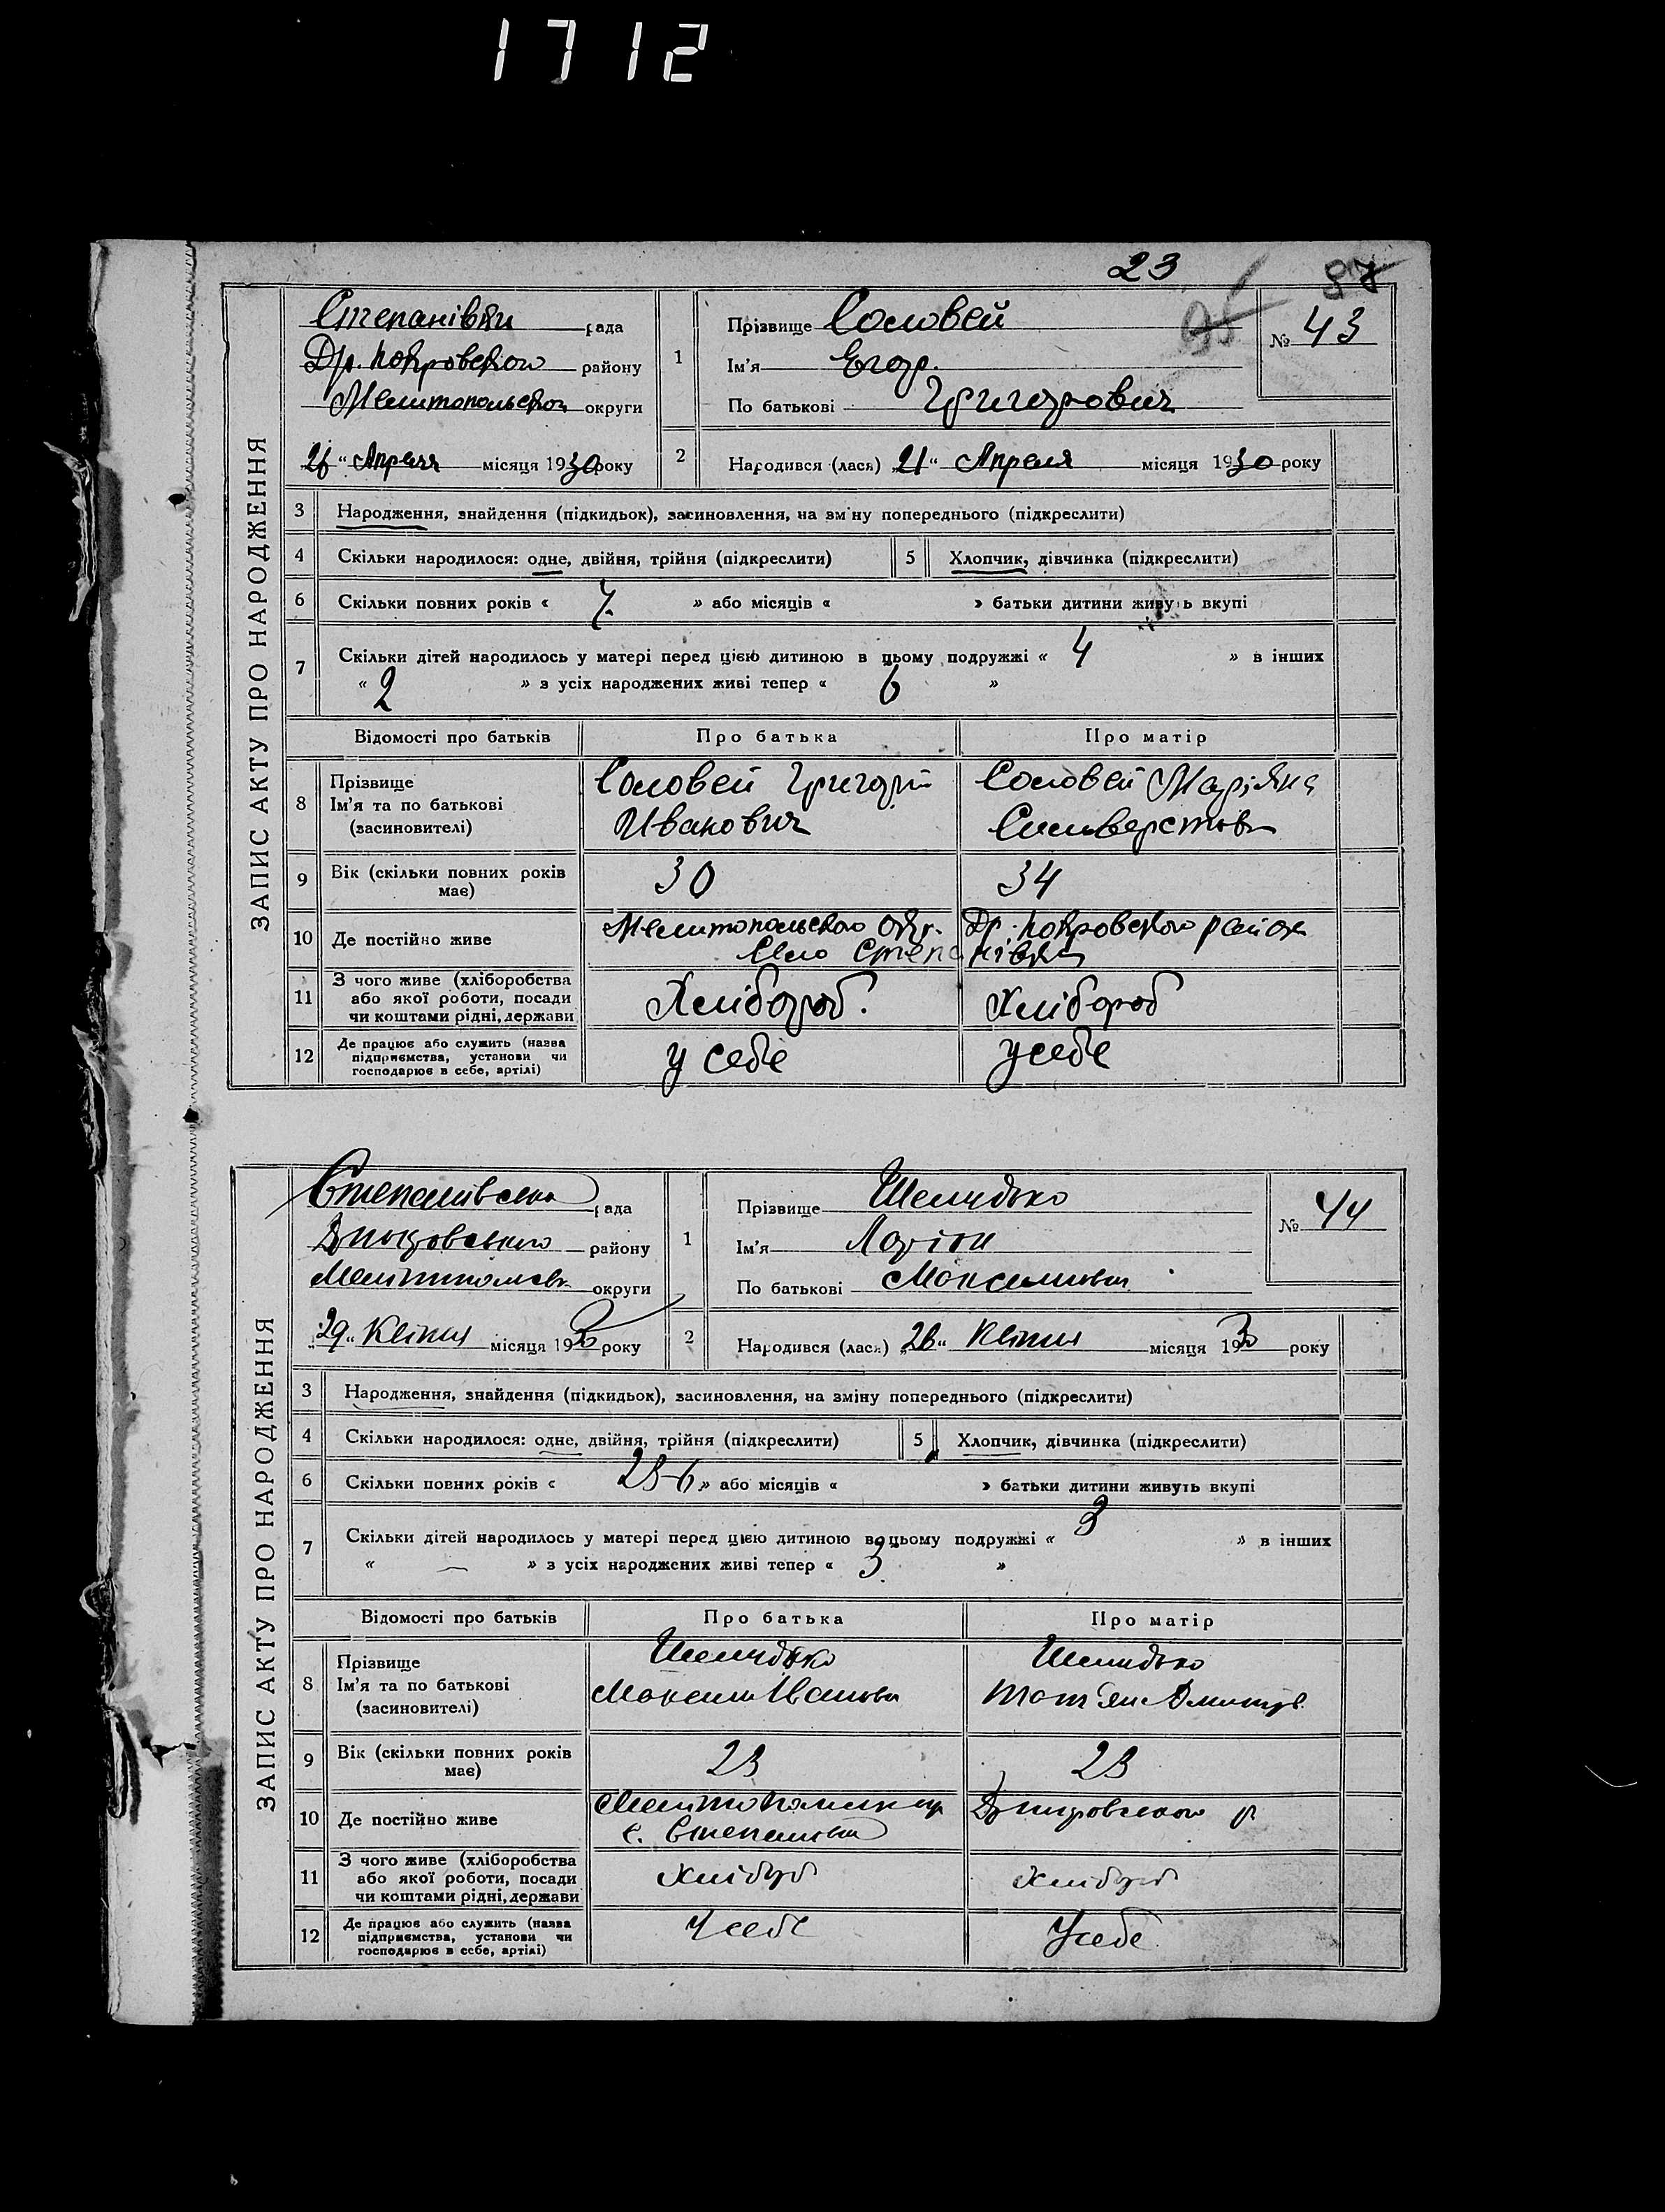 1712
23
87
95
ЗАПИС АКТУ ПРО НАРОДЖЕННЯ
Степанівки рада
Др. Покровского району
Мелитопольской округи
1 Прізвище Соловей
Ім'я Егор.
По батькові Григорович
№ 43
"21" Апреля місяця 1930 року
2 Народився (лася) "21" Апреля місяця 1930 року
3 Народження, знайдення (підкидьок), засиновлення, на зміну попереднього (підкреслити)
4 Скільки народилося: одне, двійня, трійня (підкреслити) 5 Хлопчик, дівчинка (підкреслити)
6 Скільки повних років « 7. » або місяців « » батьки дитини живуть вкупі
7 Скільки дітей народилось у матері перед цією дитиною в цьому подружжі « 4 » в інших
« 2 » з усіх народжених живі тепер « 6 »
Відомості про батьків Про батька Про матір
8 Прізвище
Ім'я та по батькові
(засиновителі)
Соловей Григорій
Иванович
Соловей
9 Вік (скільки повних років
має)
30 34
10 Де постійно живе
Мелитопольского окр. Др. Покровского район
Село Степанівка
11 З чого живе (хліборобства
або якої роботи, посади
чи коштами рідні, держави
Хлібороб. Хлібороб
12 Де працює або служить (назва
підприємства, установи чи
господарює в себе, артілі)
у себе у себе
ЗАПИС АКТУ ПРО НАРОДЖЕННЯ
Степанівська рада
району
округи
1 Прізвище Шелудько
Ім'я Ларіон
По батькові Максимович
№ 44
"29" Квітня місяця 1930 року
2 Народився (лася) "28" Квітня місяця 1930 року
3 Народження, знайдення (підкидьок), засиновлення, на зміну попереднього (підкреслити)
4 Скільки народилося: одне, двійня, трійня (підкреслити) 5 Хлопчик, дівчинка (підкреслити)
6 Скільки повних років « » або місяців « » батьки дитини живуть вкупі
7 Скільки дітей народилось у матері перед цією дитиною в цьому подружжі « 3 » в інших
« — » з усіх народжених живі тепер « 3 »
Відомості про батьків Про батька Про матір
8 Прізвище
Ім'я та по батькові
(засиновителі)
Шелудько
Максим Іванови
Шелудько
9 Вік (скільки повних років
має)
10 Де постійно живе
с. Степанівка
11 З чого живе (хліборобства
або якої роботи, посади
чи коштами рідні, держави
Хлібороб Хлібороб
12 Де працює або служить (назва
підприємства, установи чи
господарює в себе, артілі)
У себе У себе